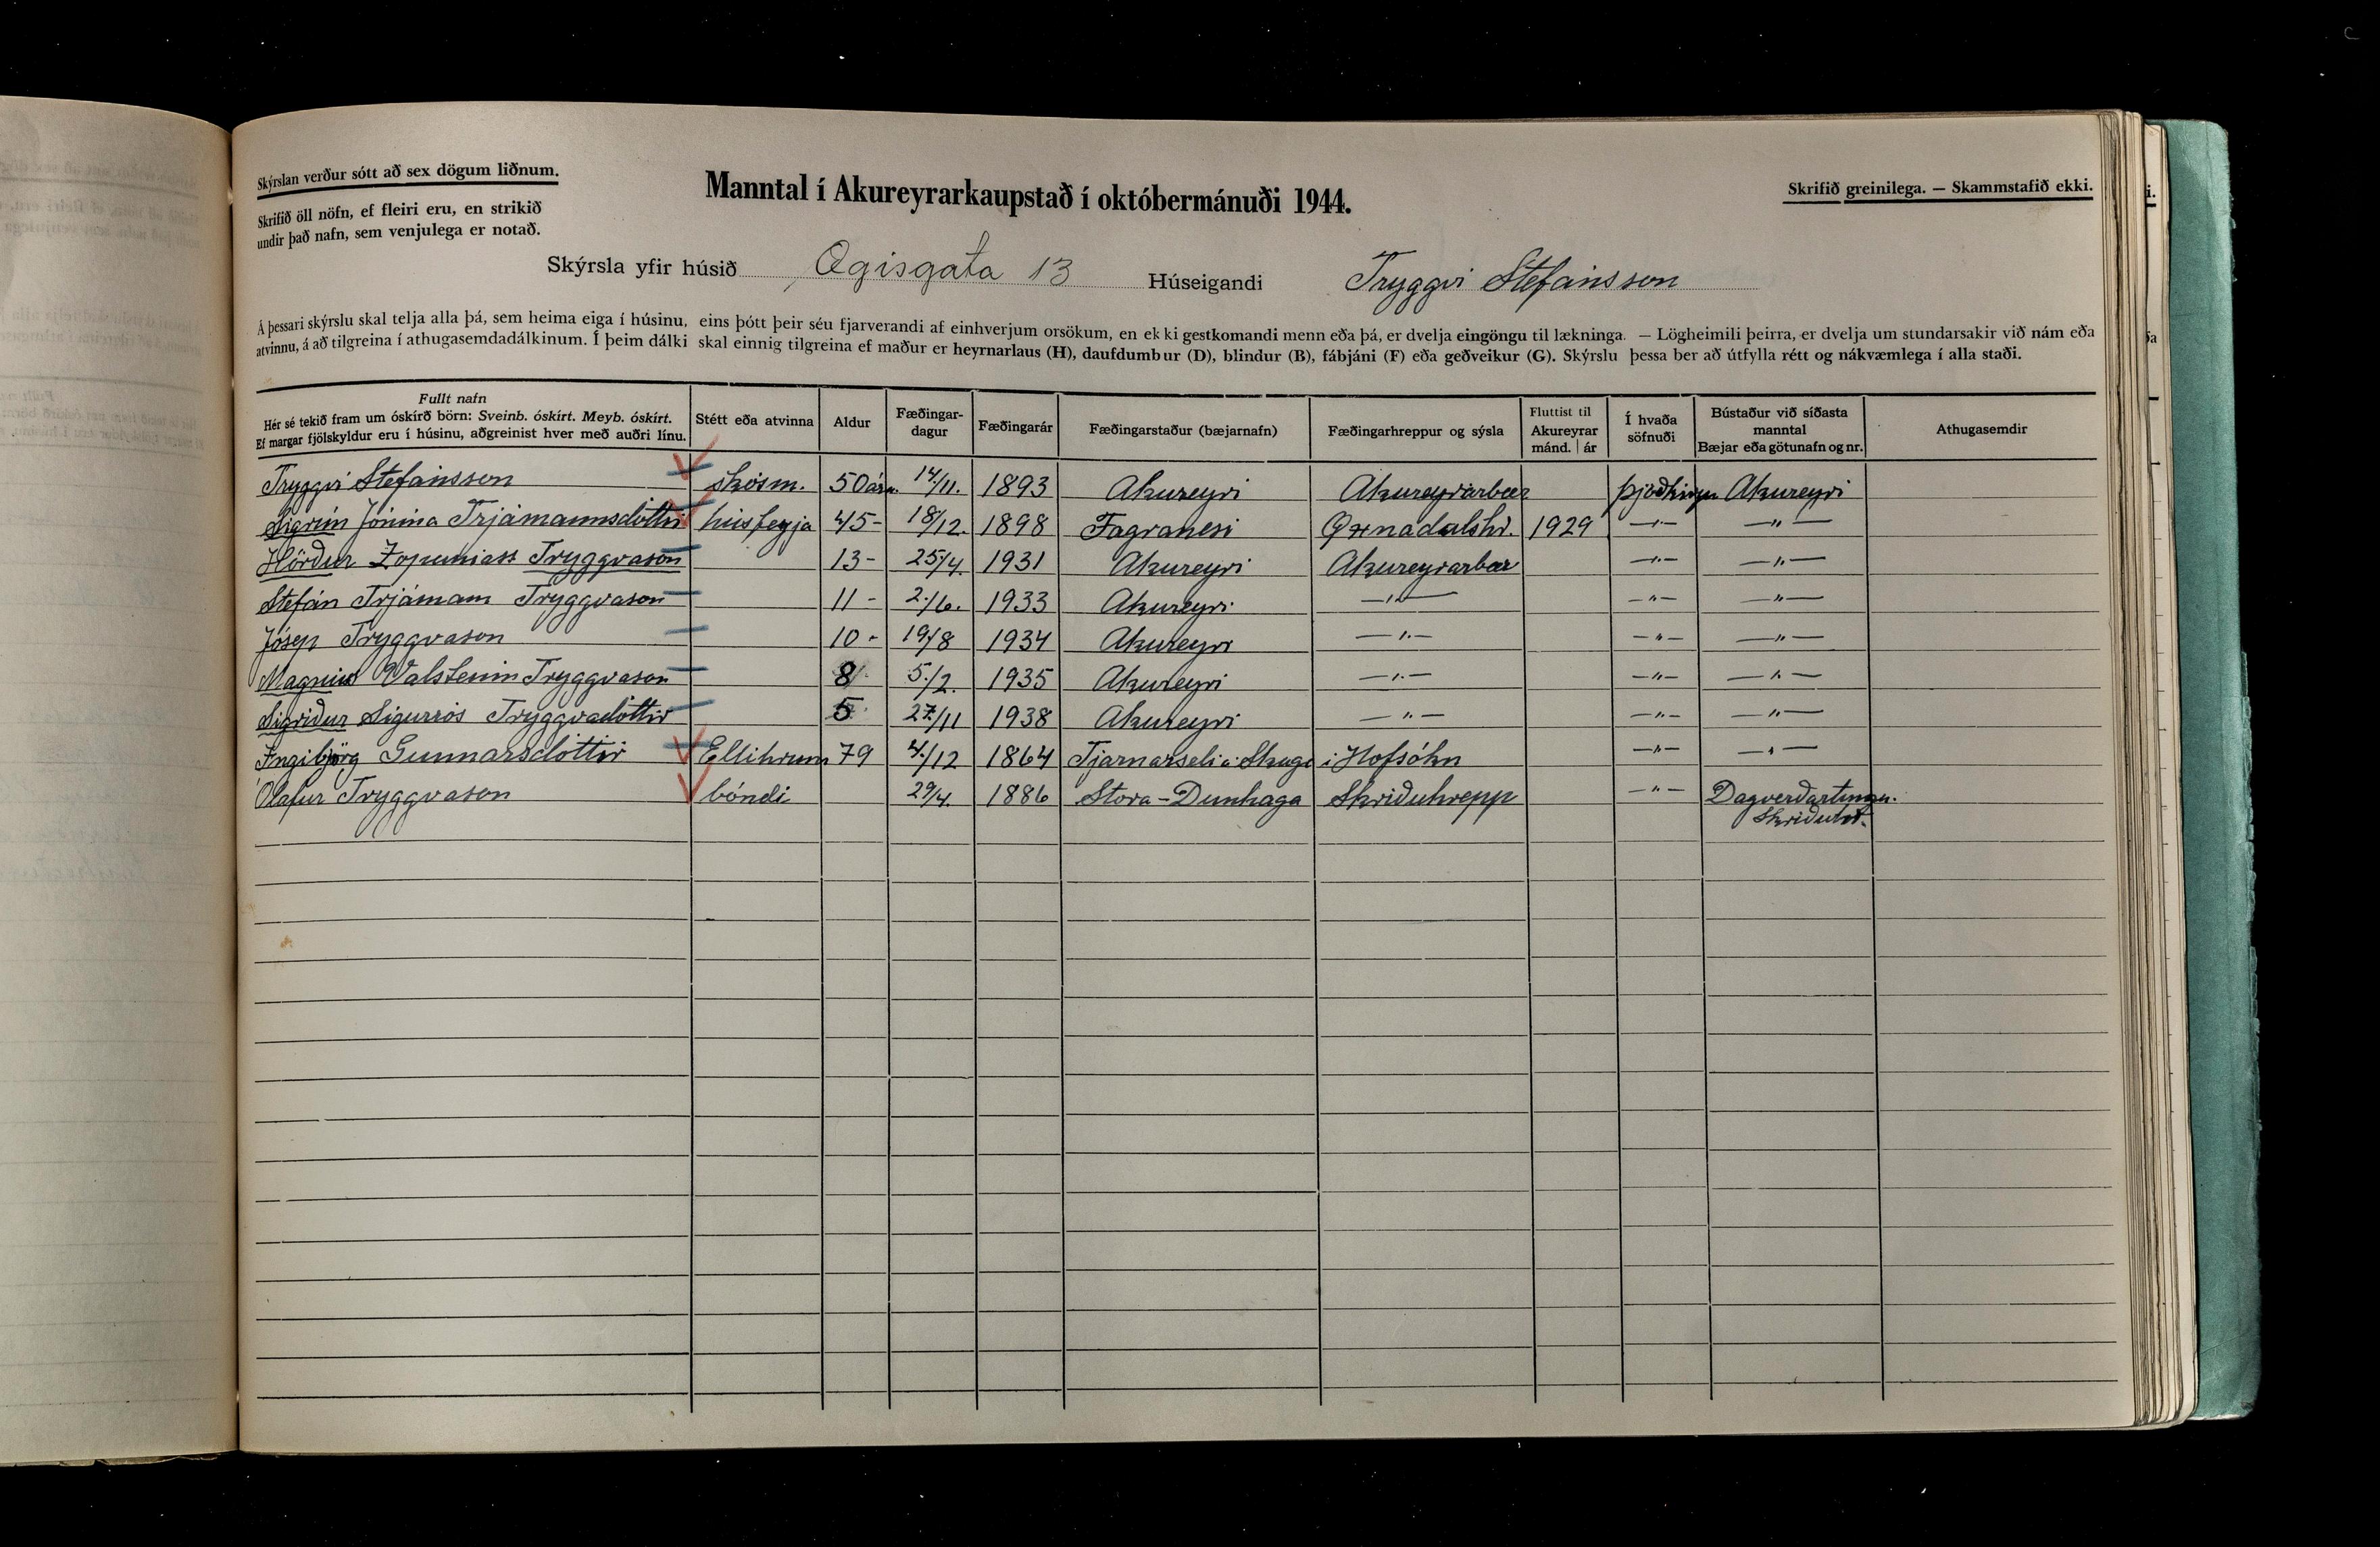 Skýrslan verður sótt að sex dögum liðnum.
Skrifið öll nöfn, ef fleiri eru, en strikið
undir það nafn, sem venjulega er notað.
Manntal í Akureyrarkaupstað í októbermánuði 1944.
Skrifið greinilega. — Skammstafið ekki.
Skýrsla yfir húsið Ægisgata 13 Húseigandi Tryggvi Stefánsson
Á þessari skýrslu skal telja alla þá, sem heima eiga í húsinu, eins þótt þeir séu fjarverandi af einhverjum orsökum, en ekki gestkomandi menn eða þá, er dvelja eingöngu til lækninga. — Lögheimili þeirra, er dvelja um stundarsakir við nám eða
atvinnu, á að tilgreina í athugasemdadálkinum. Í þeim dálki skal einnig tilgreina ef maður er heyrnarlaus (H), daufdumbur (D), blindur (B), fábjáni (F) eða geðveikur (G). Skýrslu þessa ber að útfylla rétt og nákvæmlega í alla staði.
Fullt nafn
Hér sé tekið fram um óskírð börn: Sveinb. óskírt. Meyb. óskírt.
Ef margar fjölskyldur eru í húsinu, aðgreinist hver með auðri línu.
Stétt eða atvinna
Aldur
Fæðingar-
dagur
Fæðingarár
Fæðingarstaður (bæjarnafn)
Fæðingarhreppur og sýsla
Fluttist til
Akureyrar
mánd. | ár
Í hvaða
söfnuði
Bústaður við síðasta
manntal
Bæjar eða götunafn og nr.
Athugasemdir
Tryggvi Stefánsson skósm. 50 ára 14/11. 1893 Akureyri Akureyrarbær Akureyri
Sigrún Jónína Trjámannsdóttir húsfreyja 45- 18/12. 1898 Fagranesi Öxnadalshr. 1929 —"— —"—
Hörður Tryggvason 13- 25/4. 1931 Akureyri Akureyrarbær —"— —"—
Stefán Trjámann Tryggvason 11- 2./6. 1933 Akureyri —"— —"— —"—
Jósep Tryggvason 10- 19/8 1934 Akureyri —"— —"— —"—
Magnús Valsteinn Tryggvason 8 5./2. 1935 Akureyri —"— —"— —"—
Sigríður Sigurrós Tryggvadóttir 5 27/11 1938 Akureyri —"— —"— —"—
Ingibjörg Gunnarsdóttir Ellihrum 79 4./12 1864 Tjarnarseli á Skaga í Hofsókn —"— —"—
Ólafur Tryggvason bóndi 29/4. 1886 Stóra-Dunhaga Skriðuhrepp —"—
Skriðuhr.